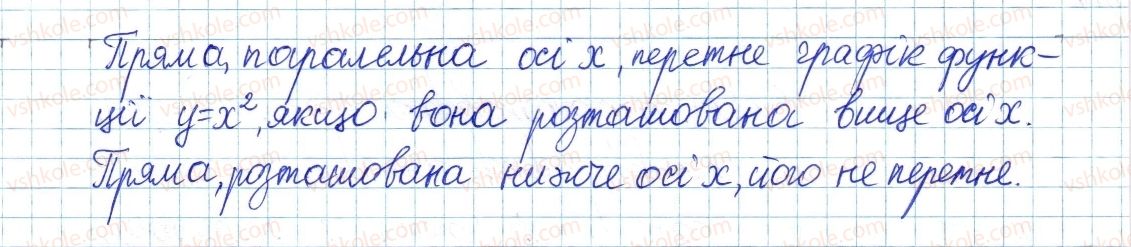 Пряма, паралельна осі x, перетне графік функ-
ції y=x², якщо вона розташована вище осі x.
Пряма, розташована нижче осі x, його не перетне.